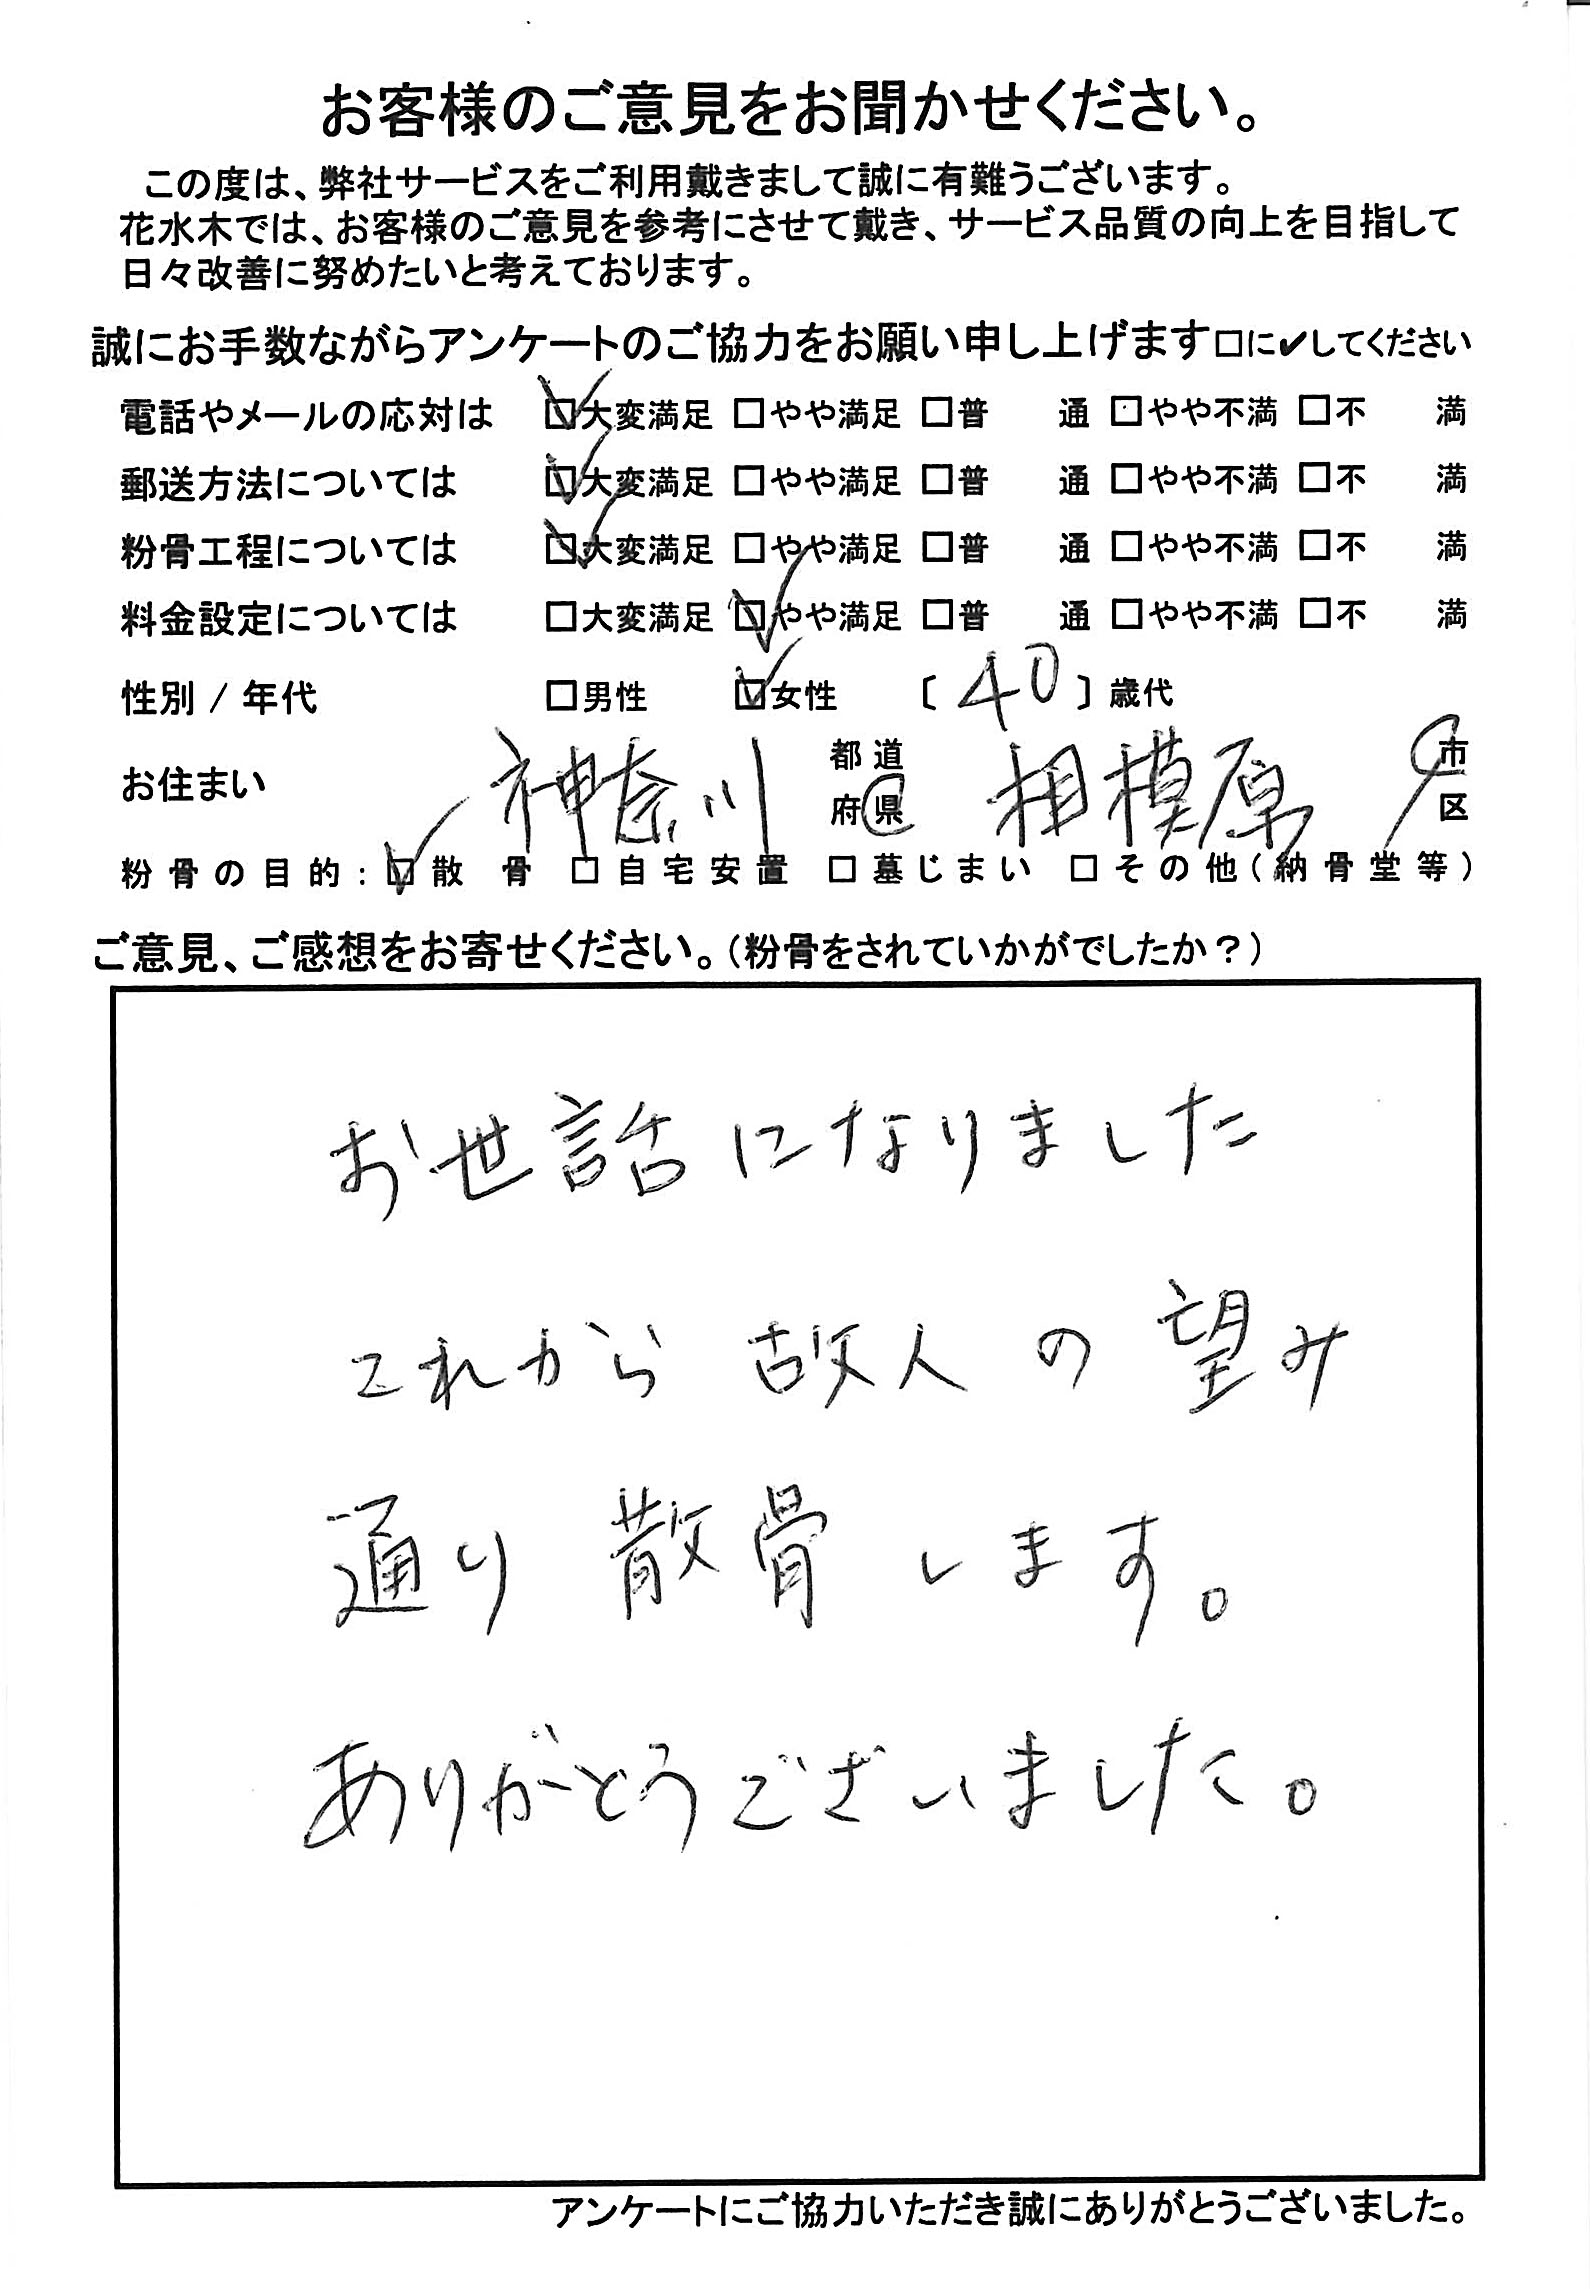 お客様のご意見をお聞かせください。
この度は、弊社サービスをご利用戴きまして誠に有難うございます。
花水木では、お客様のご意見を参考にさせて戴き、サービス品質の向上を目指して
日々改善に努めたいと考えております。
誠にお手数ながらアンケートのご協力をお願い申し上げます□に✔してください
電話やメールの応対は ☑大変満足 □やや満足 □普 通 □やや不満 □不 満
郵送方法については ☑大変満足 □やや満足 □普 通 □やや不満 □不 満
粉骨工程については ☑大変満足 □やや満足 □普 通 □やや不満 □不 満
料金設定については □大変満足 ☑やや満足 □普 通 □やや不満 □不 満
性別 / 年代 □男性 ☑女性 〔 40 〕歳代
お住まい 神奈川 都道府県 相模原 市区
粉骨の目的: ☑散 骨 □自宅安置 □墓じまい □その他(納骨堂等)
ご意見、ご感想をお寄せください。(粉骨をされていかがでしたか?)
お世話になりました
これから 故人の望み
通り 散骨します。
ありがとうございました。
アンケートにご協力いただき誠にありがとうございました。